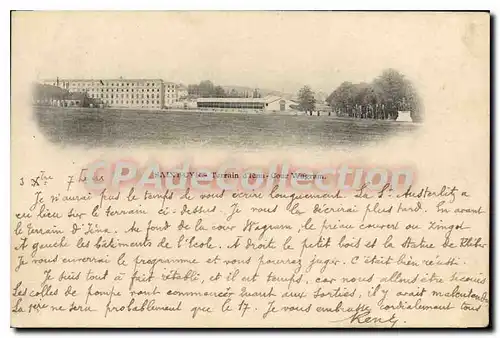 SAINT-CYR - Terrain d'Iéna - Cour Wagram
www.cartes-postales.delcampe
3 Xbre 7h
Je n'aurai pas le temps de vous écrire longuement. La St. Austerlitz a
eu lieu sur le terrain ci-dessus. Je vous la décrirai plus tard. En avant
le terrain d'Iéna. Au fond de la cour Wagram, le préau couvert ou Zingot
A gauche les bâtiments de l'Ecole. A droit le petit bois et la statue de Kléber
Je vous enverrai le programme et vous pourrez juger. C'était bien réussi.
Je suis tout à fait rétabli, et il est temps, car nous allons être
Les colles de pompe vont commencer quant aux sorties, il y avait malentendu
La 1ère ne sera probablement que le 17. Je vous embrasse cordialement tous
Henri